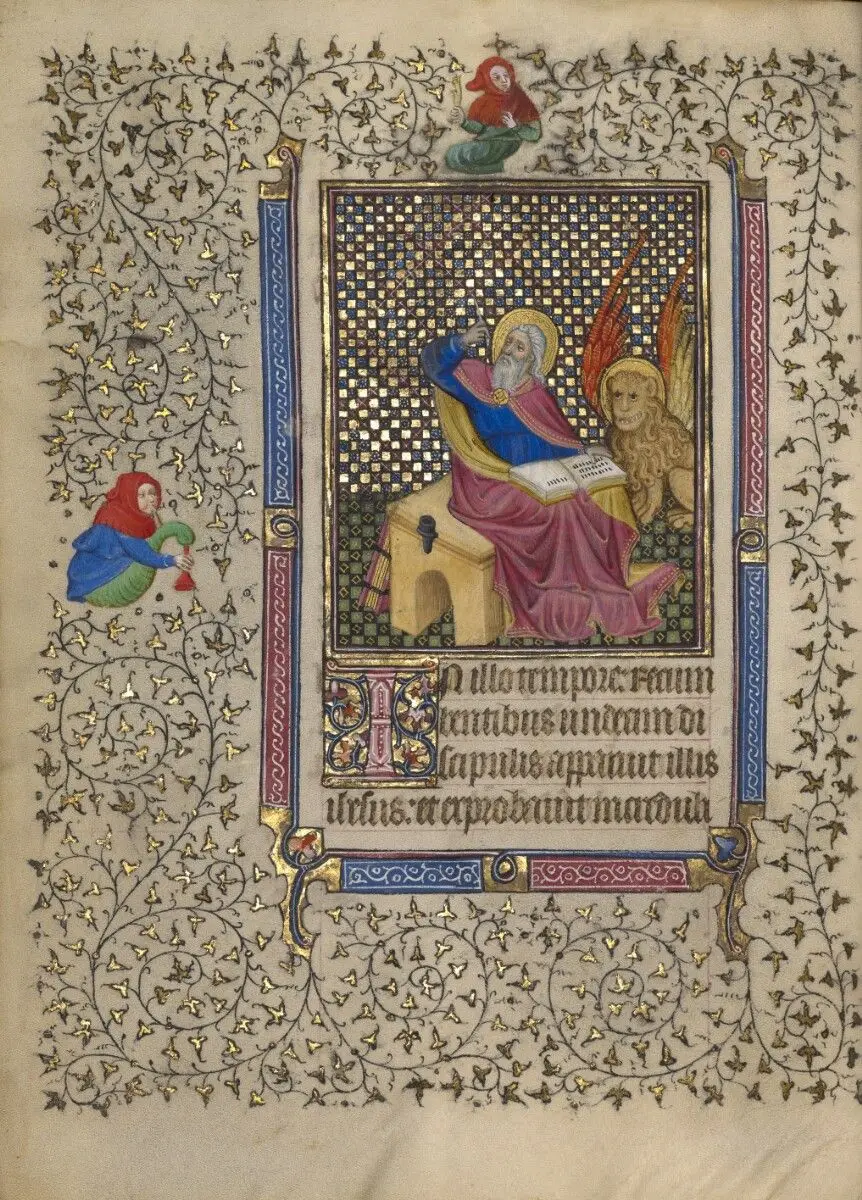 IN illo tempore: Recum
bentibus undecim di
scipulis apparuit illis
ihesus: et exprobauit increduli